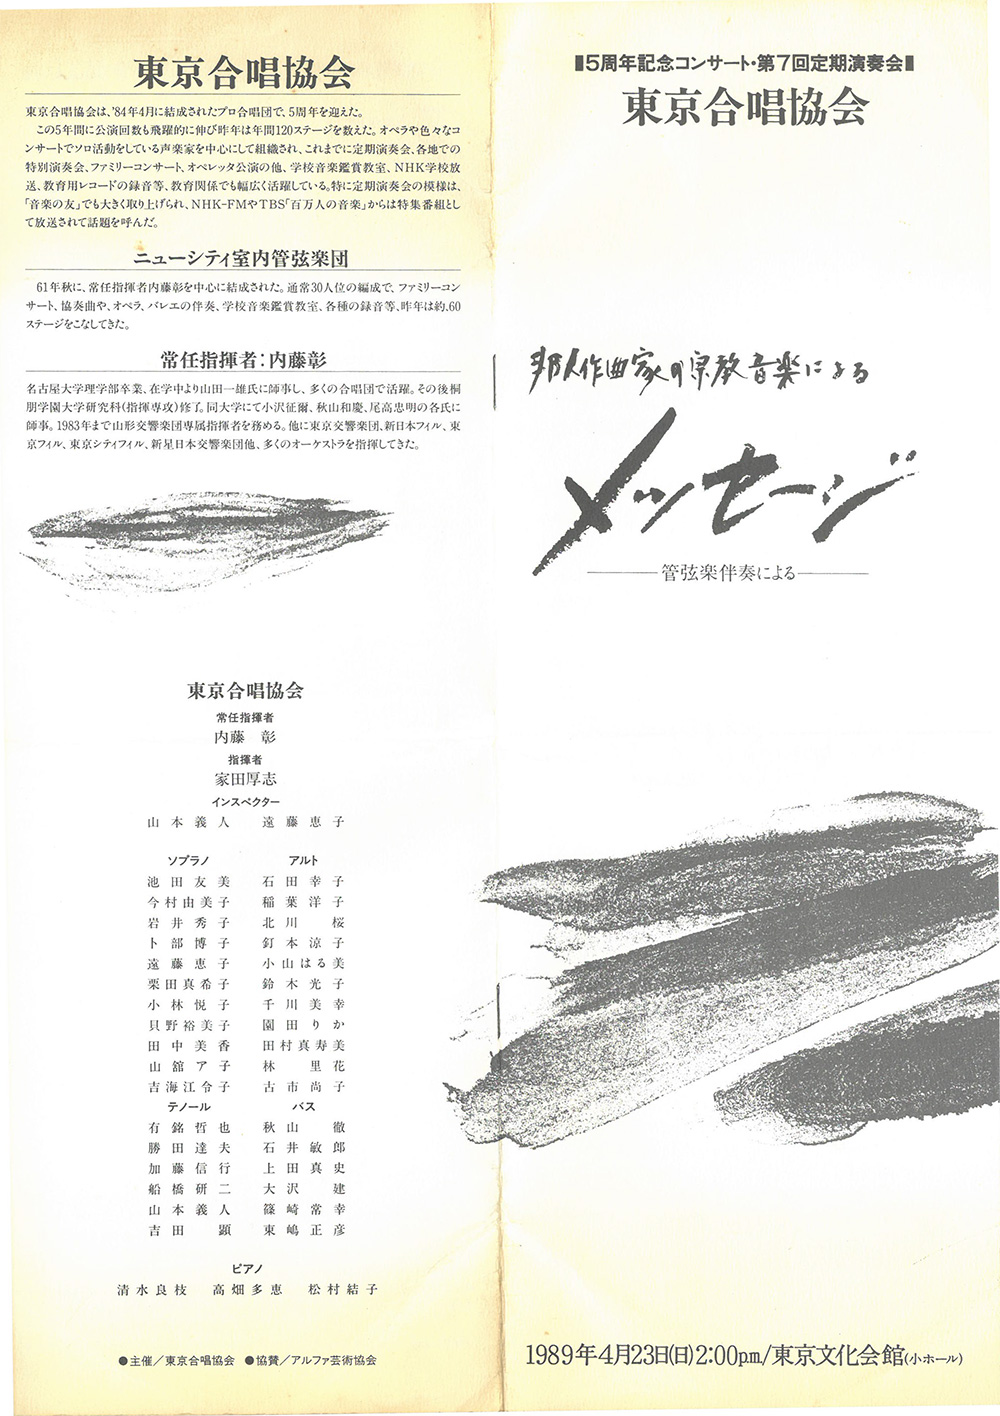 東京合唱協会
東京合唱協会は、'84年4月に結成されたプロ合唱団で、5周年を迎えた。
この5年間に公演回数も飛躍的に伸び昨年は年間120ステージを数えた。オペラや色々なコ
ンサートでソロ活動をしている声楽家を中心にして組織され、これまでに定期演奏会、各地での
特別演奏会、ファミリーコンサート、オペレッタ公演の他、学校音楽鑑賞教室、NHK学校放
送、教育用レコードの録音等、教育関係でも幅広く活躍している。特に定期演奏会の模様は、
「音楽の友」でも大きく取り上げられ、NHK-FMやTBS「百万人の音楽」からは特集番組とし
て放送されて話題を呼んだ。
ニューシティ室内管弦楽団
61年秋に、常任指揮者内藤彰を中心に結成された。通常30人位の編成で、ファミリーコン
サート、協奏曲や、オペラ、バレエの伴奏、学校音楽鑑賞教室、各種の録音等、昨年は約、60
ステージをこなしてきた。
常任指揮者:内藤彰
名古屋大学理学部卒業、在学中より山田一雄氏に師事し、多くの合唱団で活躍。その後桐
朋学園大学研究科(指揮専攻)修了。同大学にて小沢征爾、秋山和慶、尾高忠明の各氏に
師事。1983年まで山形交響楽団専属指揮者を務める。他に東京交響楽団、新日本フィル、東
京フィル、東京シティフィル、新星日本交響楽団他、多くのオーケストラを指揮してきた。
東京合唱協会
常任指揮者
内藤 彰
指揮者
家田厚志
インスペクター
山本義人 遠藤恵子
ソプラノ アルト
池田友美 石田幸子
今村由美子 稲葉洋子
岩井秀子 北川 桜
卜部博子 釘本涼子
遠藤恵子 小山はる美
栗田真希子 鈴木光子
小林悦子 千川美幸
貝野裕美子 園田りか
田中美香 田村真寿美
山舘ア子 林 里花
吉海江令子 古市尚子
テノール バス
有銘哲也 秋山 徹
勝田達夫 石井敏郎
加藤信行 上田真史
船橋研二 大沢 建
山本義人 篠崎常幸
吉田 顕 東嶋正彦
ピアノ
清水良枝 高畑多恵 松村結子
●主催/東京合唱協会 ●協賛/アルファ芸術協会
5周年記念コンサート・第7回定期演奏会
東京合唱協会
邦人作曲家の宗教音楽による
メッセージ
管弦楽伴奏による
1989年4月23日(日)2:00p.m./東京文化会館(小ホール)